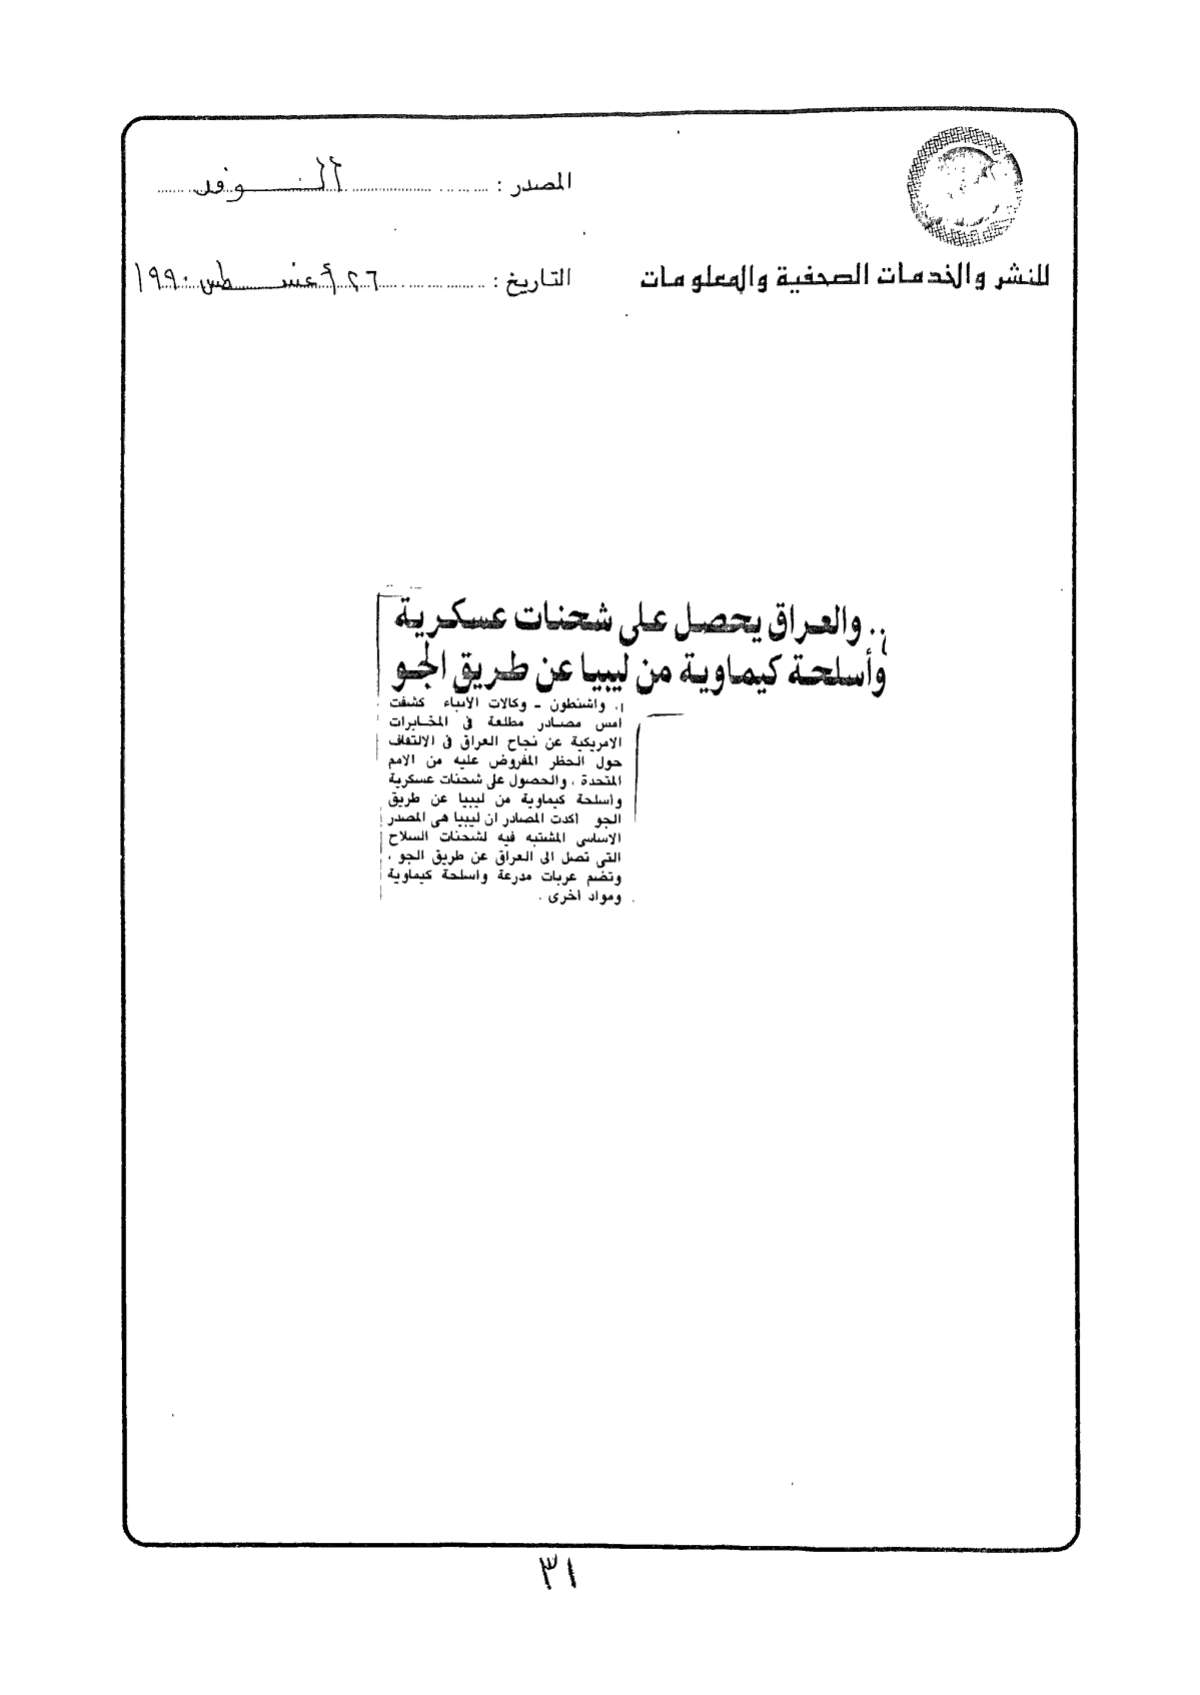 المصدر : الوفد
للنشر والخدمات الصحفية والمعلومات
التاريخ : ٢٦ أغسطس ١٩٩٠
.. والعراق يحصل على شحنات عسكرية
وأسلحة كيماوية من ليبيا عن طريق الجو
واشنطون - وكالات الأنباء كشفت
امس مصادر مطلعة في المخابرات
الامريكية عن نجاح العراق في الالتفاف
حول الحظر المفروض عليه من الامم
المتحدة ، والحصول على شحنات عسكرية
واسلحة كيماوية من ليبيا عن طريق
الجو اكدت المصادر ان ليبيا هى المصدر
الاساسى المشتبه فيه لشحنات السلاح
التى تصل الى العراق عن طريق الجو ،
وتضم عربات مدرعة واسلحة كيماوية
ومواد اخرى .
٣١